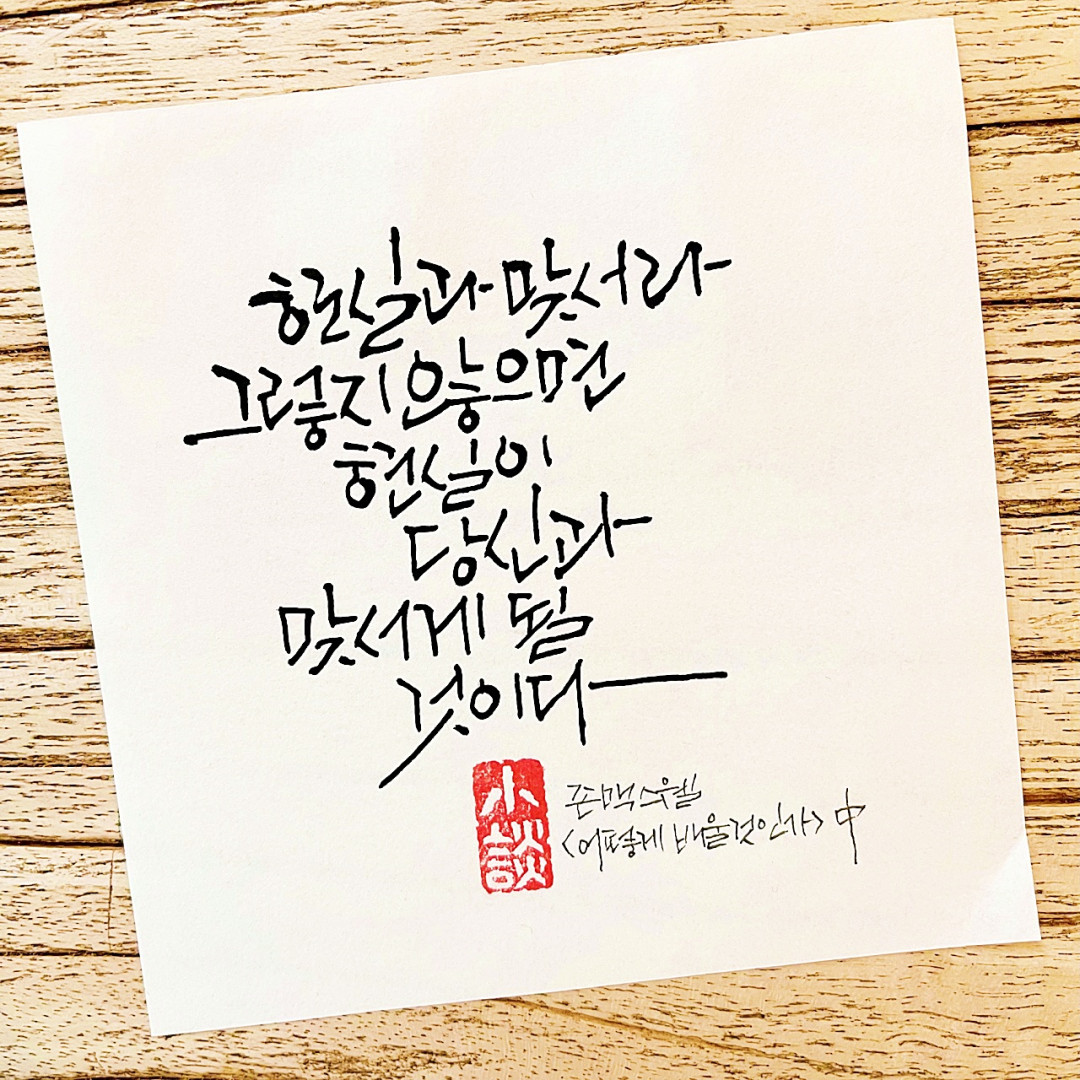 현실과 맞서라
그렇지 않으면
현실이
당신과
맞서게 될
것이다
小談
존 맥스웰
<어떻게 배울 것인가> 中